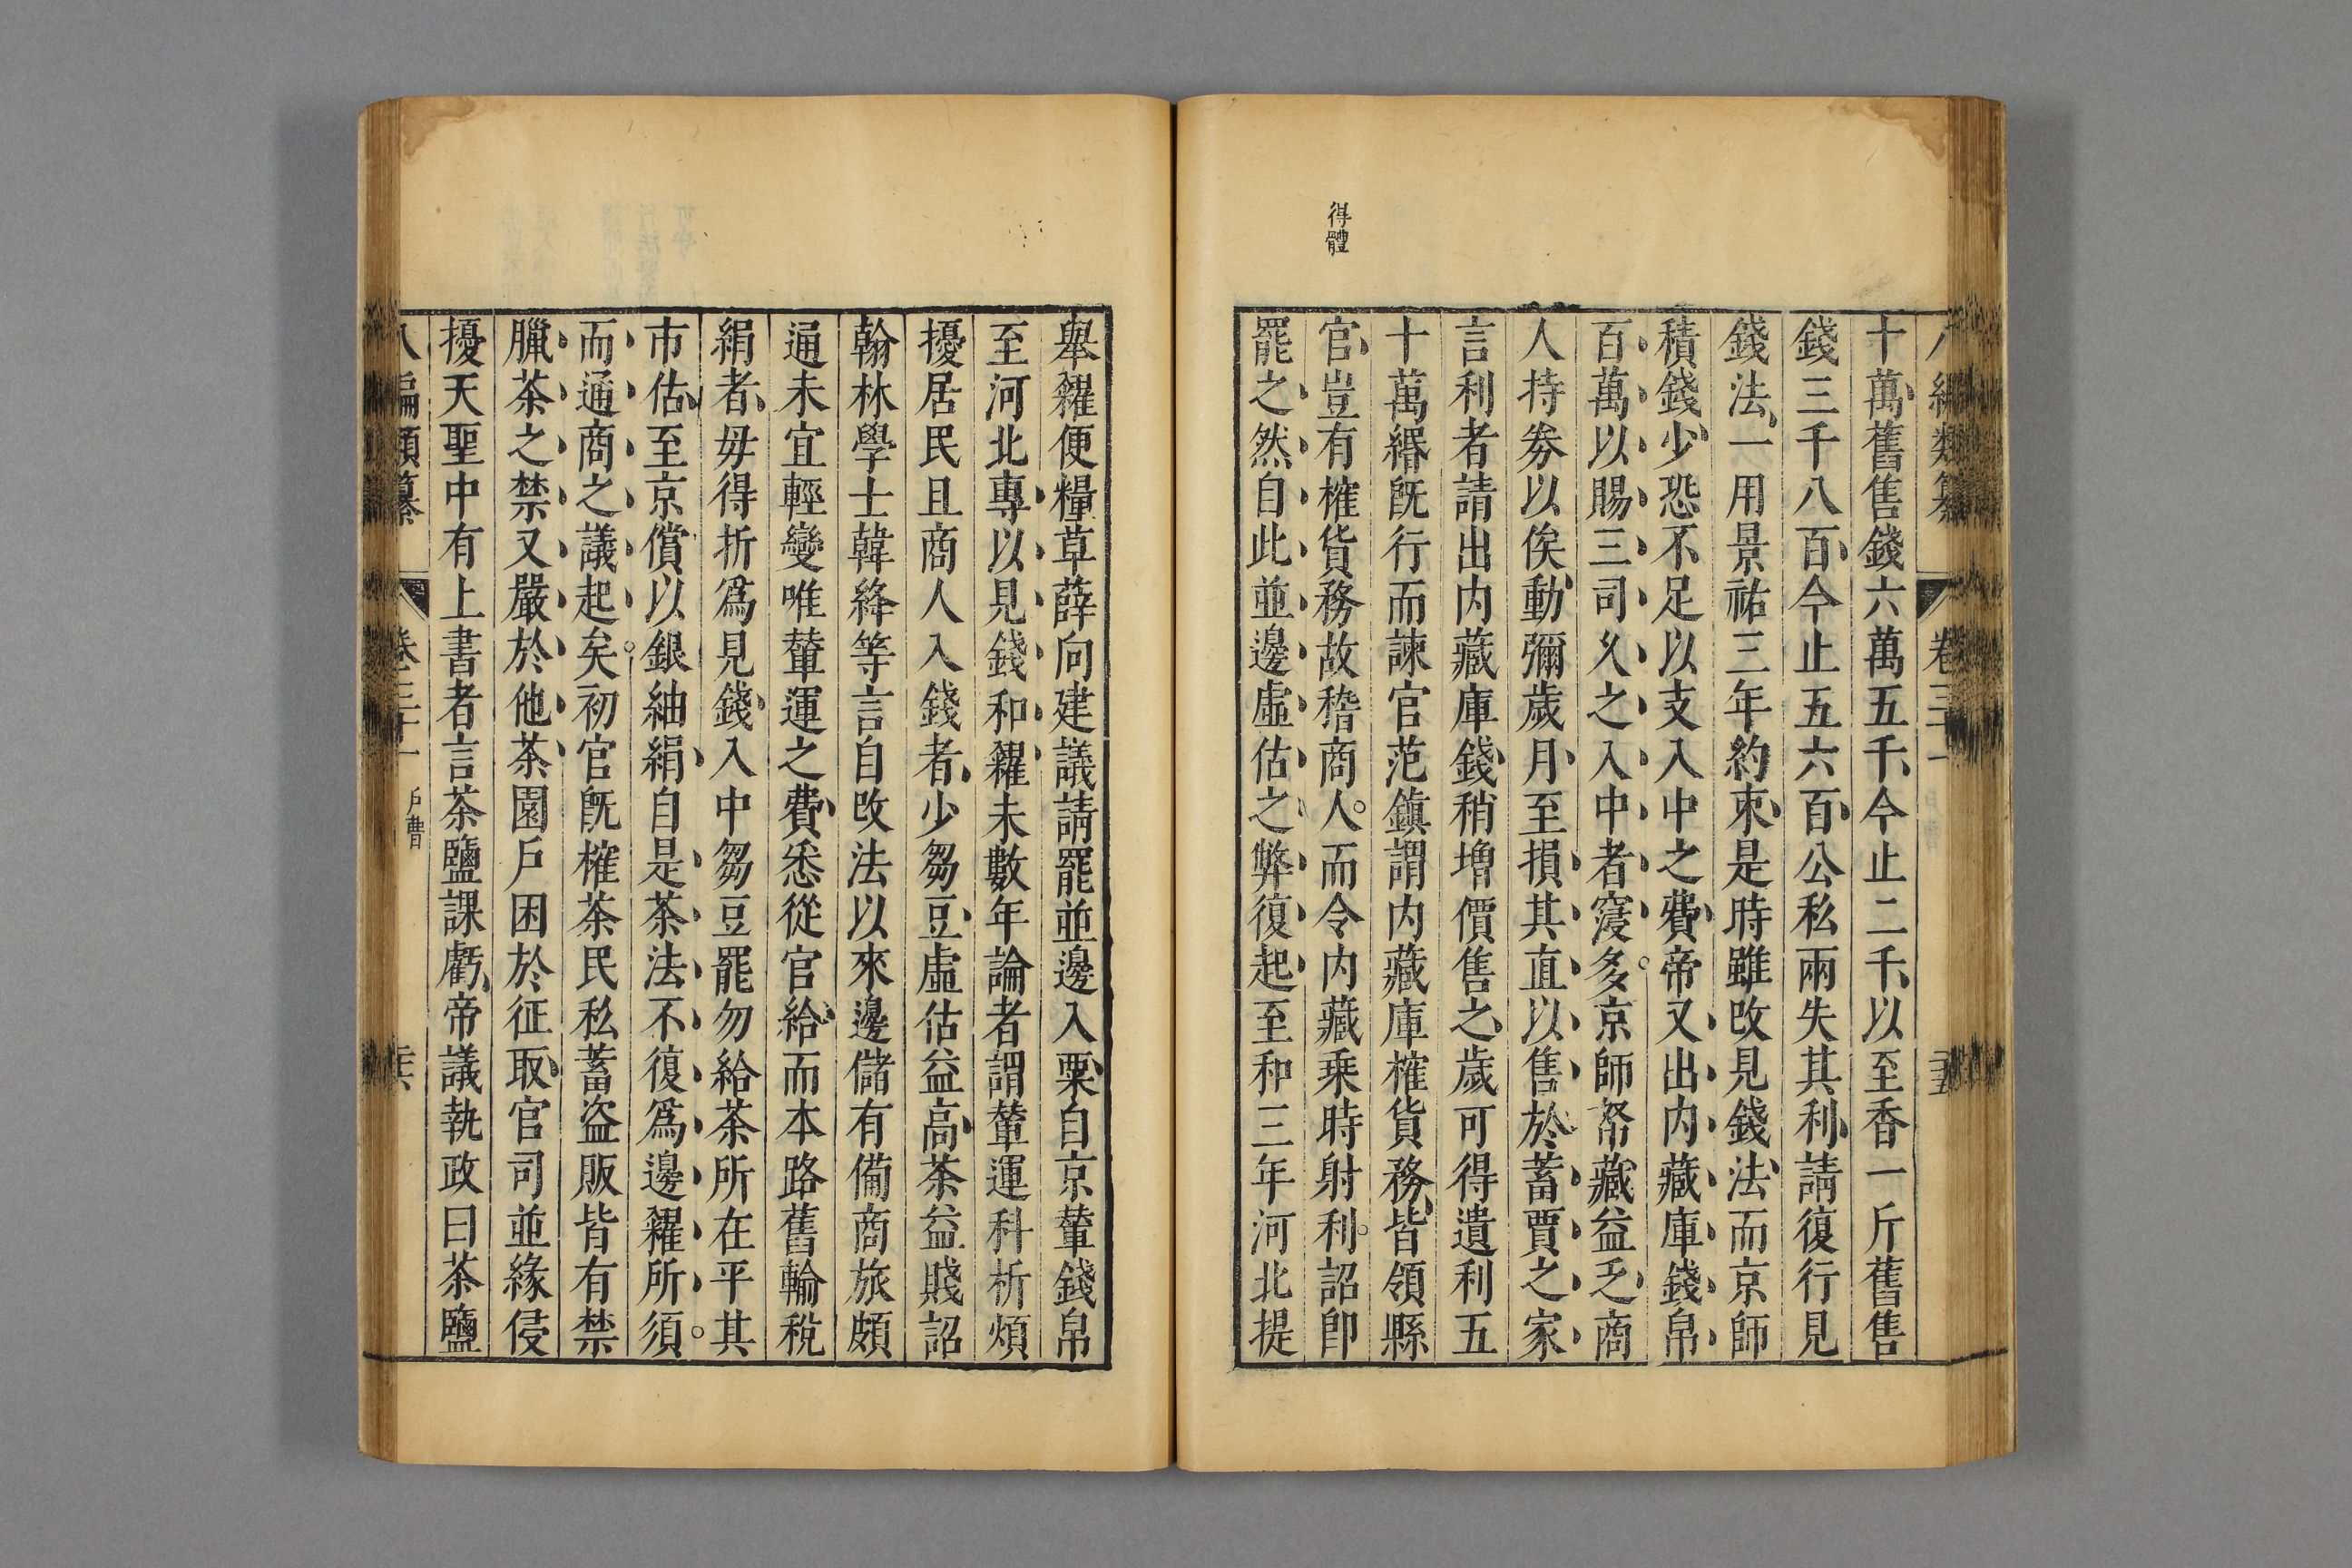 得體
十萬舊售錢六萬五千今止二千以至香一斤舊售
錢三千八百今止五六百公私兩失其利請復行見
錢法一用景祐三年約束是時雖改見錢法而京師
積錢少恐不足以支入中之費帝又出内藏庫錢帛
百萬以賜三司久之入中者寖多京師帑藏益乏商
人持劵以俟動彌歲月至損其直以售於蓄賈之家
言利者請出内藏庫錢稍增價售之歲可得遺利五
十萬緡旣行而諫官范鎮謂内藏庫榷貨務皆領縣
官豈有榷貨務故稽商人而令内藏乗時射利詔卽
罷之然自此並邊虛估之弊復起至和三年河北提
舉糴便糧草薛向建議請罷並邊入粟自京輦錢帛
至河北專以見錢和糴未數年論者謂輦運科折煩
擾居民且商人入錢者少芻豆虛估益高茶益賤詔
翰林學士韓絳等言自改法以來邊儲有備商旅頗
通未宜輕變唯輦運之費悉從官給而本路舊輸稅
絹者毋得折爲見錢入中芻豆罷勿給茶所在平其
市估至京償以銀紬絹自是茶法不復爲邊糴所須
而通商之議起矣初官旣榷茶民私蓄盗販皆有禁
臘茶之禁又嚴於他茶園戶困於征取官司並緣侵
擾天聖中有上書者言茶鹽課虧帝議執政曰茶鹽
戶曹